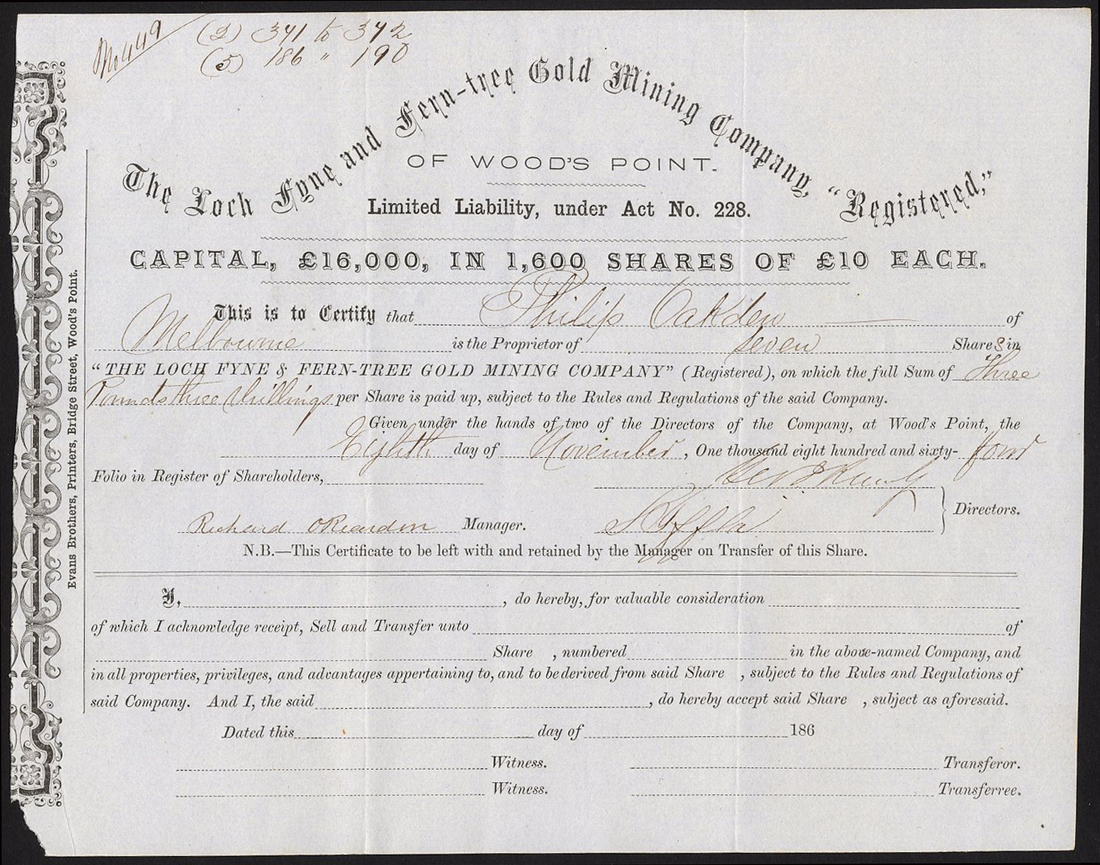 No 449
(2) 341 to 342
(5) 186 " 190
The Loch Fyne and Fern-tree Gold Mining Company, "Registered,"
OF WOOD'S POINT.
Limited Liability, under Act No. 228.
CAPITAL, £16,000, IN 1,600 SHARES OF £10 EACH.
This is to Certify that Philip Oakden of
Melbourne is the Proprietor of seven Shares in
"THE LOCH FYNE & FERN-TREE GOLD MINING COMPANY" (Registered), on which the full Sum of Three
Pounds three shillings per Share is paid up, subject to the Rules and Regulations of the said Company.
Given under the hands of two of the Directors of the Company, at Wood's Point, the
Eighth day of November, One thousand eight hundred and sixty-four
Folio in Register of Shareholders,
Directors.
Richard O'Reardon Manager.
N.B.—This Certificate to be left with and retained by the Manager on Transfer of this Share.
I, , do hereby, for valuable consideration
of which I acknowledge receipt, Sell and Transfer unto of
Share , numbered in the above-named Company, and
in all properties, privileges, and advantages appertaining to, and to be derived from said Share , subject to the Rules and Regulations of
said Company. And I, the said , do hereby accept said Share , subject as aforesaid.
Dated this day of 186
Witness. Transferor.
Witness. Transferree.
Evans Brothers, Printers, Bridge Street, Wood's Point.